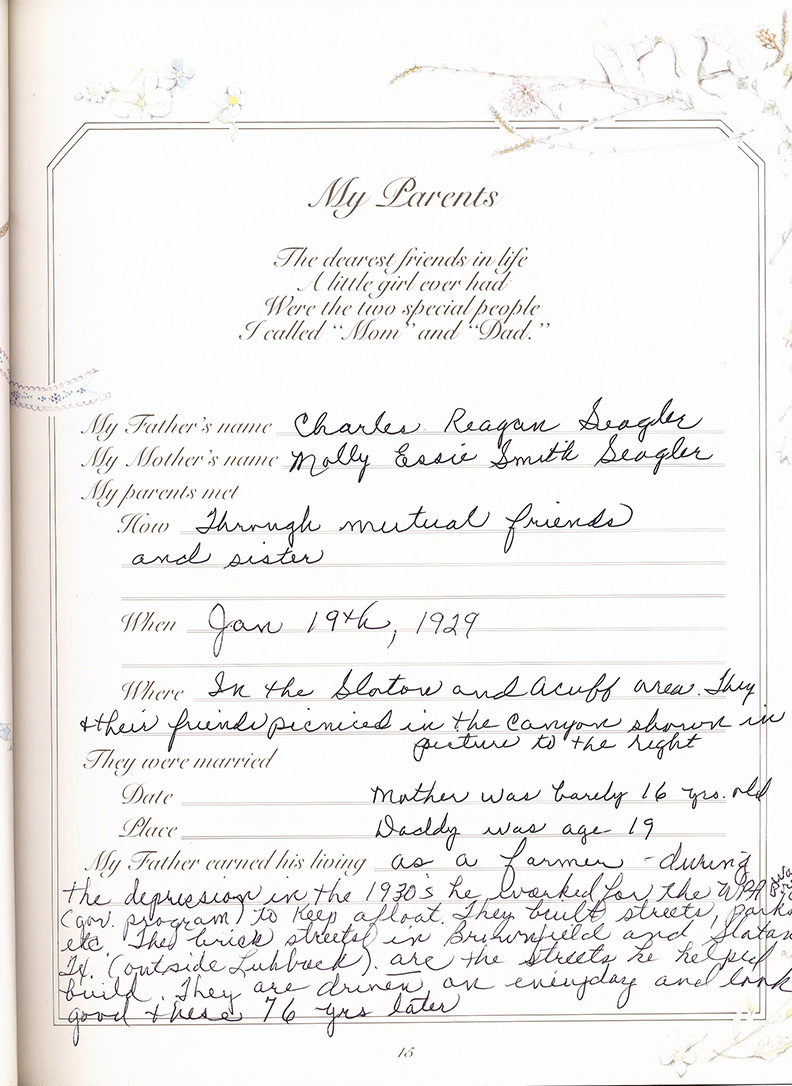 My Parents
The dearest friends in life
A little girl ever had
Were the two special people
I called "Mom" and "Dad."
My Father's name Charles Reagan Seagler
My Mother's name Molly Essie Smith Seagler
My parents met
How Through mutual friends
and sister
When Jan 19th, 1929
Where In the Slaton and Acuff area. They
& their friends picniced in the canyon shown in
picture to the right
They were married
Date Mother was barely 16 yrs. old
Place Daddy was age 19
My Father earned his living as a farmer - during
the depression in the 1930's he worked for the WPA
(gov. program) to keep afloat. They built streets, parks
etc. The brick streets in Brownfield and Slaton
Tx. (outside Lubbock). are the streets he helped
build. They are driven on everyday and look
good these 76 yrs later
15